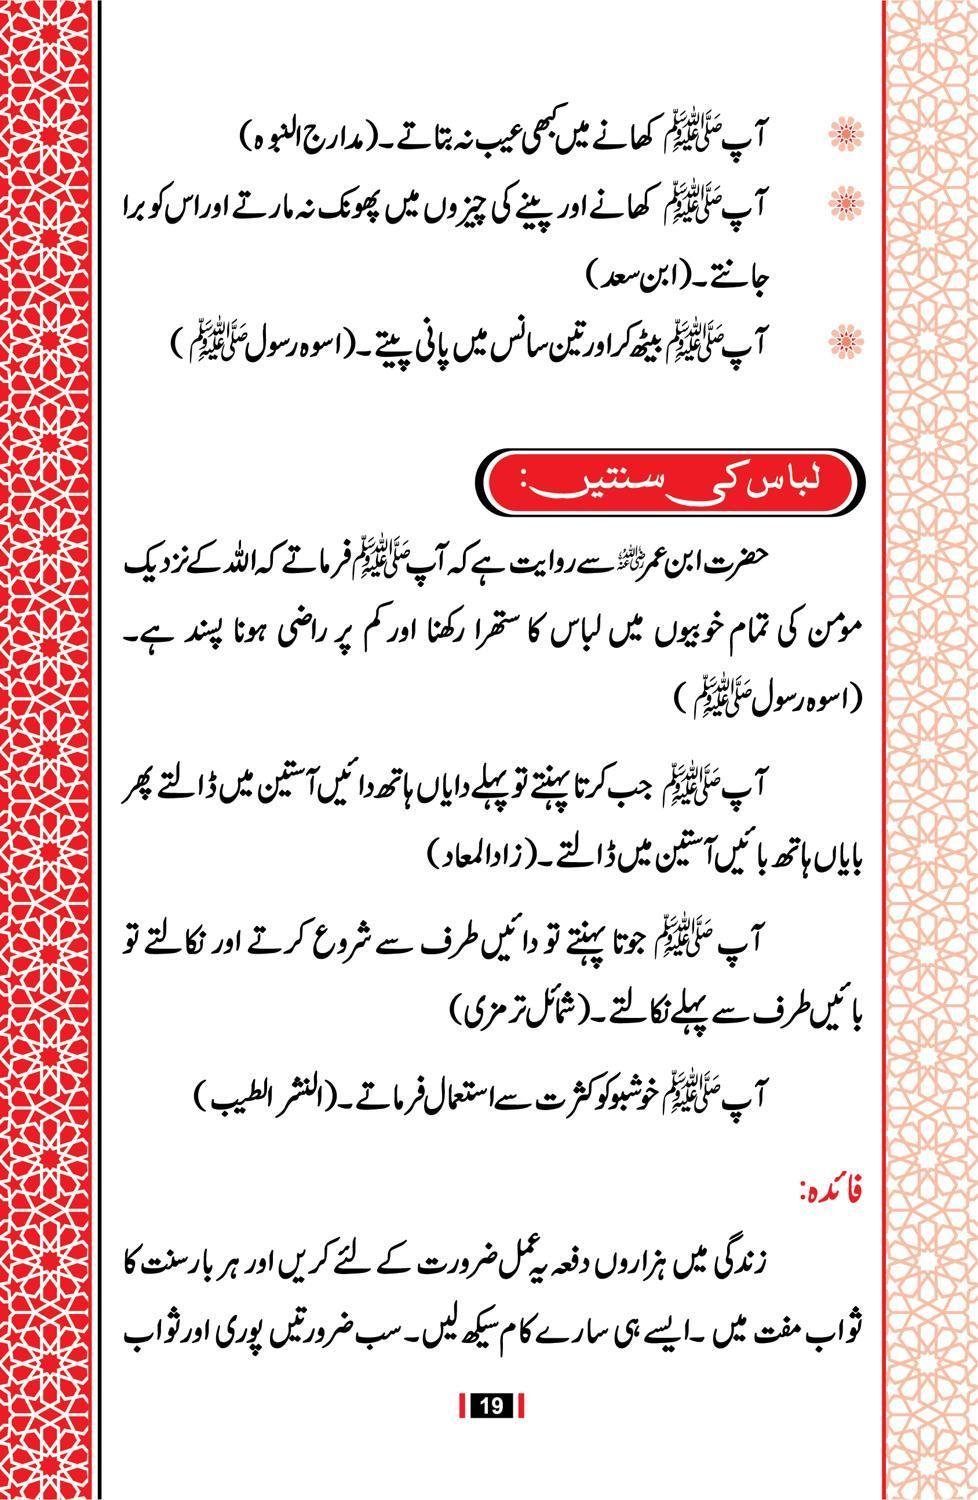 آپ ﷺ کھانے میں کبھی عیب نہ بتاتے۔(مدارج النبوہ)
آپ ﷺ کھانے اور پینے کی چیزوں میں پھونک نہ مارتے اور اس کو برا
جانتے۔(ابن سعد)
آپ ﷺ بیٹھ کر اور تین سانس میں پانی پیتے۔(اسوہ رسول ﷺ)
لباس کی سنتیں:
حضرت ابن عمر رضی اللہ عنہ سے روایت ہے کہ آپ ﷺ فرماتے کہ اللہ کے نزدیک
مومن کی تمام خوبیوں میں لباس کا ستھرا رکھنا اور کم پر راضی ہونا پسند ہے۔
(اسوہ رسول ﷺ)
آپ ﷺ جب کرتا پہنتے تو پہلے دایاں ہاتھ دائیں آستین میں ڈالتے پھر
بایاں ہاتھ بائیں آستین میں ڈالتے۔(زادالمعاد)
آپ ﷺ جوتا پہنتے تو دائیں طرف سے شروع کرتے اور نکالتے تو
بائیں طرف سے پہلے نکالتے۔(شمائل ترمزی)
آپ ﷺ خوشبو کو کثرت سے استعمال فرماتے۔(النشر الطیب)
فائدہ:
زندگی میں ہزاروں دفعہ یہ عمل ضرورت کے لئے کریں اور ہر بار سنت کا
ثواب مفت میں ۔ایسے ہی سارے کام سیکھ لیں۔سب ضرورتیں پوری اور ثواب
19